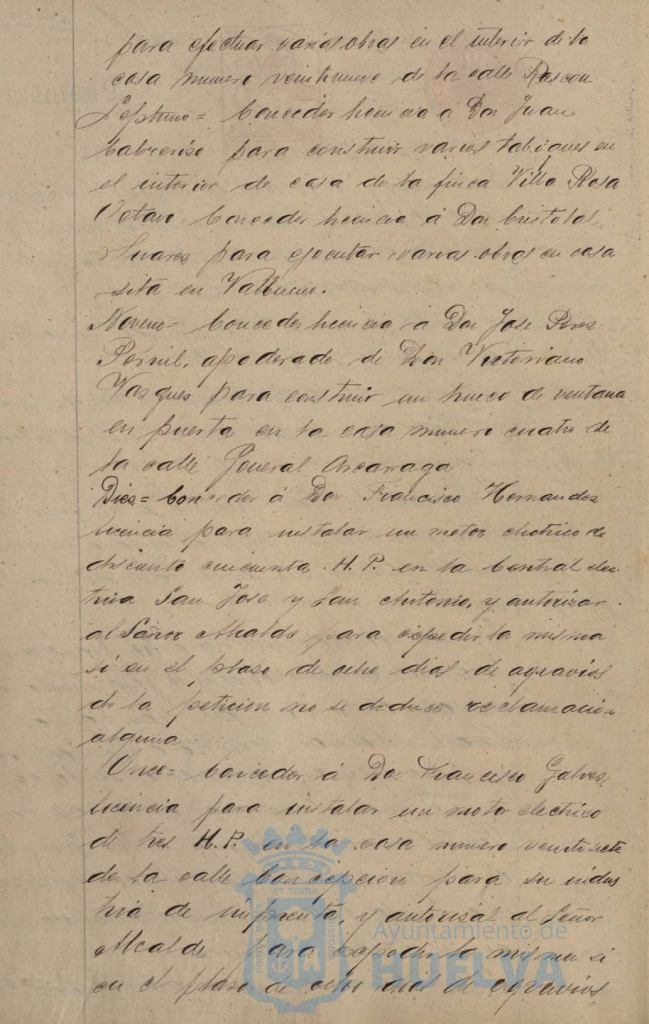 para efectuar varias obras en el interior de la
casa numero veintinueve de la calle Rascon
Septimo = Conceder licencia á Don Juan
Cabreriso para construir varios tabiques en
el interior de casa de la finca Villa Rosa
Octavo Conceder licencia á Don Cristobal
Suares para ejecutar varias obras en casa
sita en
Noveno = Conceder licencia á Don Jose Peres
Pernil, apoderado de Don Victoriano
Vasques para construir un hueco de ventana
en puerta en la casa numero cuatro de
la calle General Ascarraga
Dies = Conceder á Don Francisco Hernandes
licencia para instalar un motor electrico de
doscientos cincuenta H.P. en la Central elec
trica San Jose y San Antonio, y autorizar
al Señor Alcalde para expedir la misma
si en el plaso de ocho dias de agravios
de la peticion no se deduce reclamacion
alguna
Once = Conceder á Don Francisco Galves,
licencia para instalar un motor electrico
de tres H.P. en la casa numero veintisiete
de la calle Concepcion para su indus
tria de imprenta, y autorisar al Señor
Alcalde para expedir la misma si
en el plaso de ocho dias de agravios
Ayuntamiento de
HUELVA